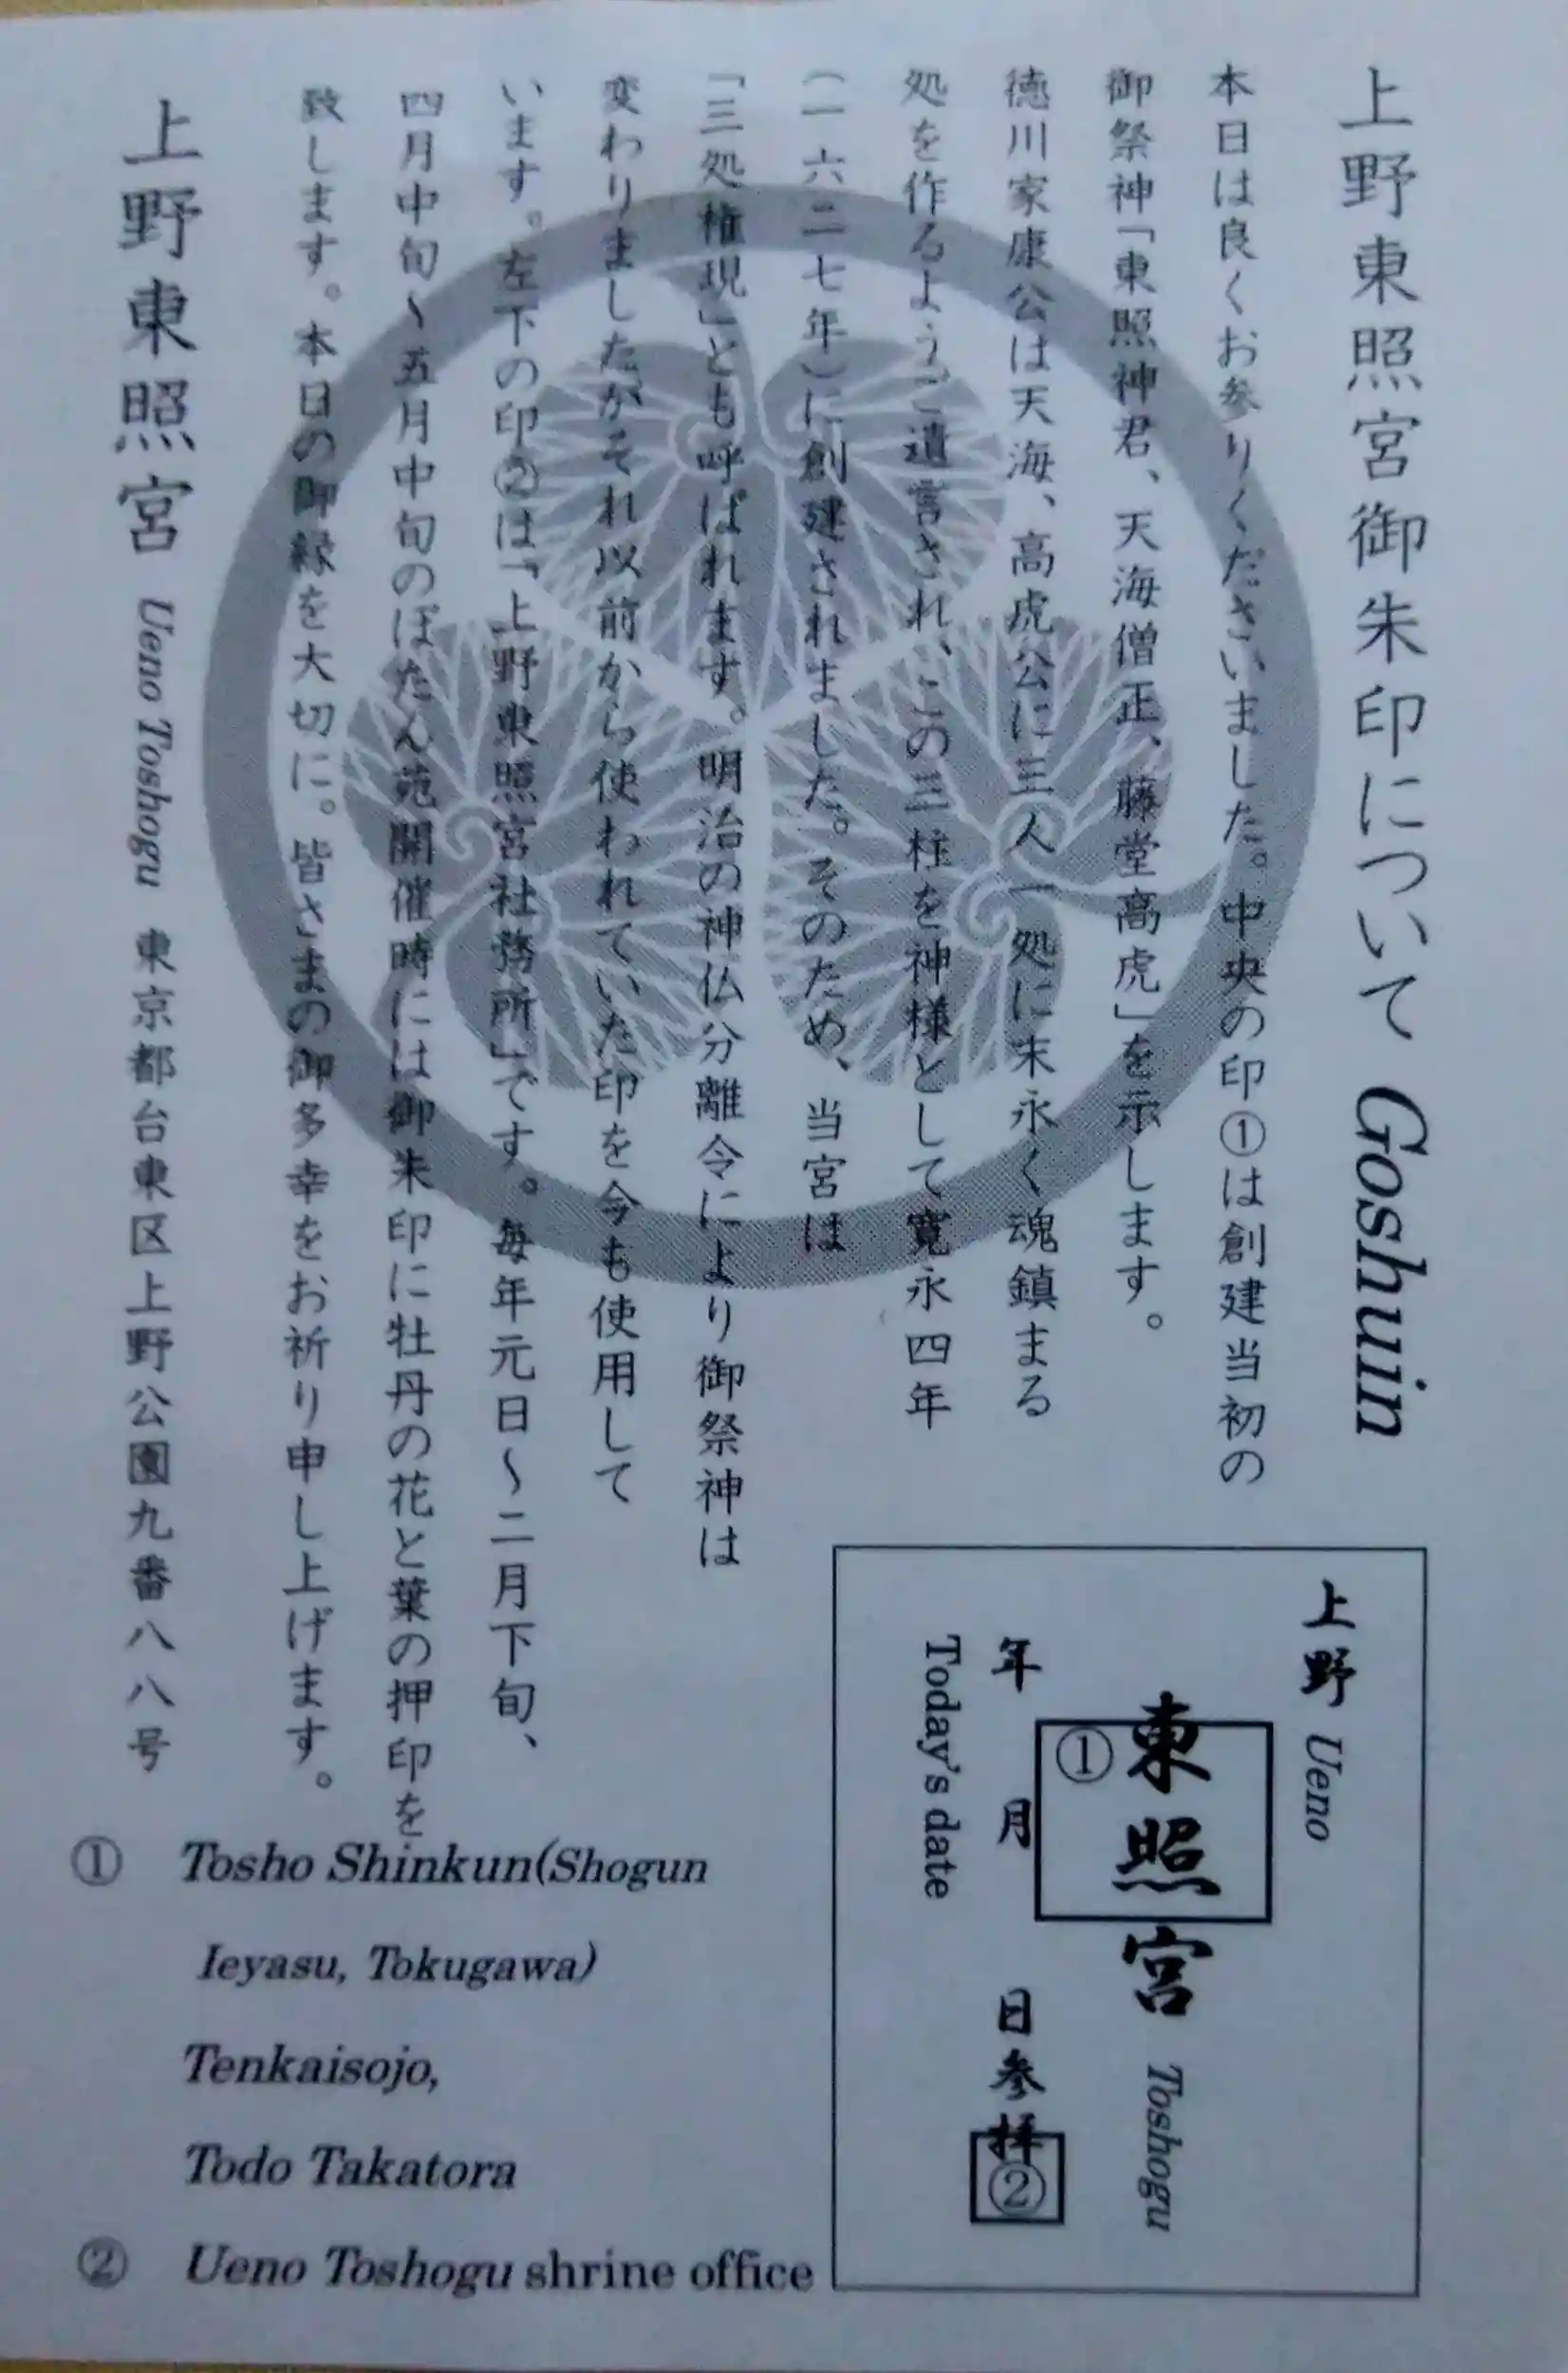 上野東照宮御朱印について Goshuin
本日は良くお参りくださいました。中央の印①は創建当初の
御祭神「東照神君、天海僧正、藤堂高虎」を示します。
徳川家康公は天海、高虎公に三人一処に末永く魂鎮まる
処を作るようご遺言され、この三柱を神様として寛永四年
(一六二七年)に創建されました。そのため、当宮は
「三処権現」とも呼ばれます。明治の神仏分離令により御祭神は
変わりましたがそれ以前から使われていた印を今も使用して
います。左下の印②は「上野東照宮社務所」です。毎年元日~二月下旬、
四月中旬~五月中旬のぼたん苑開催時には御朱印に牡丹の花と葉の押印を
致します。本日の御縁を大切に。皆さまの御多幸をお祈り申し上げます。
上野東照宮 Ueno Toshogu 東京都台東区上野公園九番八八号
上野 Ueno
①
東照宮 Toshogu
年 月 日参拝
②
Today's date
① Tosho Shinkun(Shogun
Ieyasu, Tokugawa)
Tenkaisojo,
Todo Takatora
② Ueno Toshogu shrine office